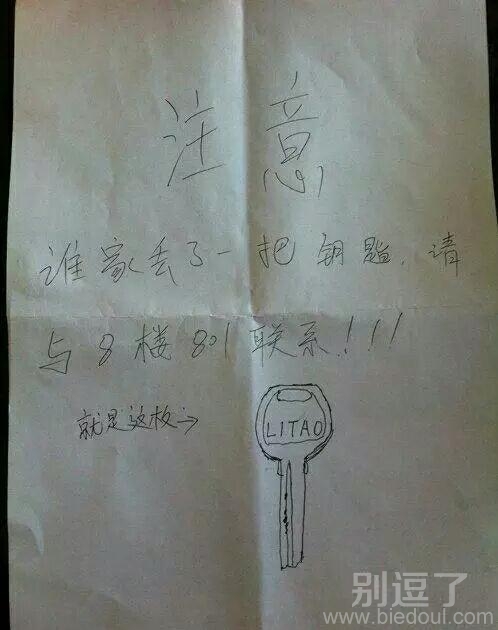 注意
谁家丢了一把钥匙,请
与8楼801联系!!!
就是这枚→
LITAO
别逗了
www.biedoul.com